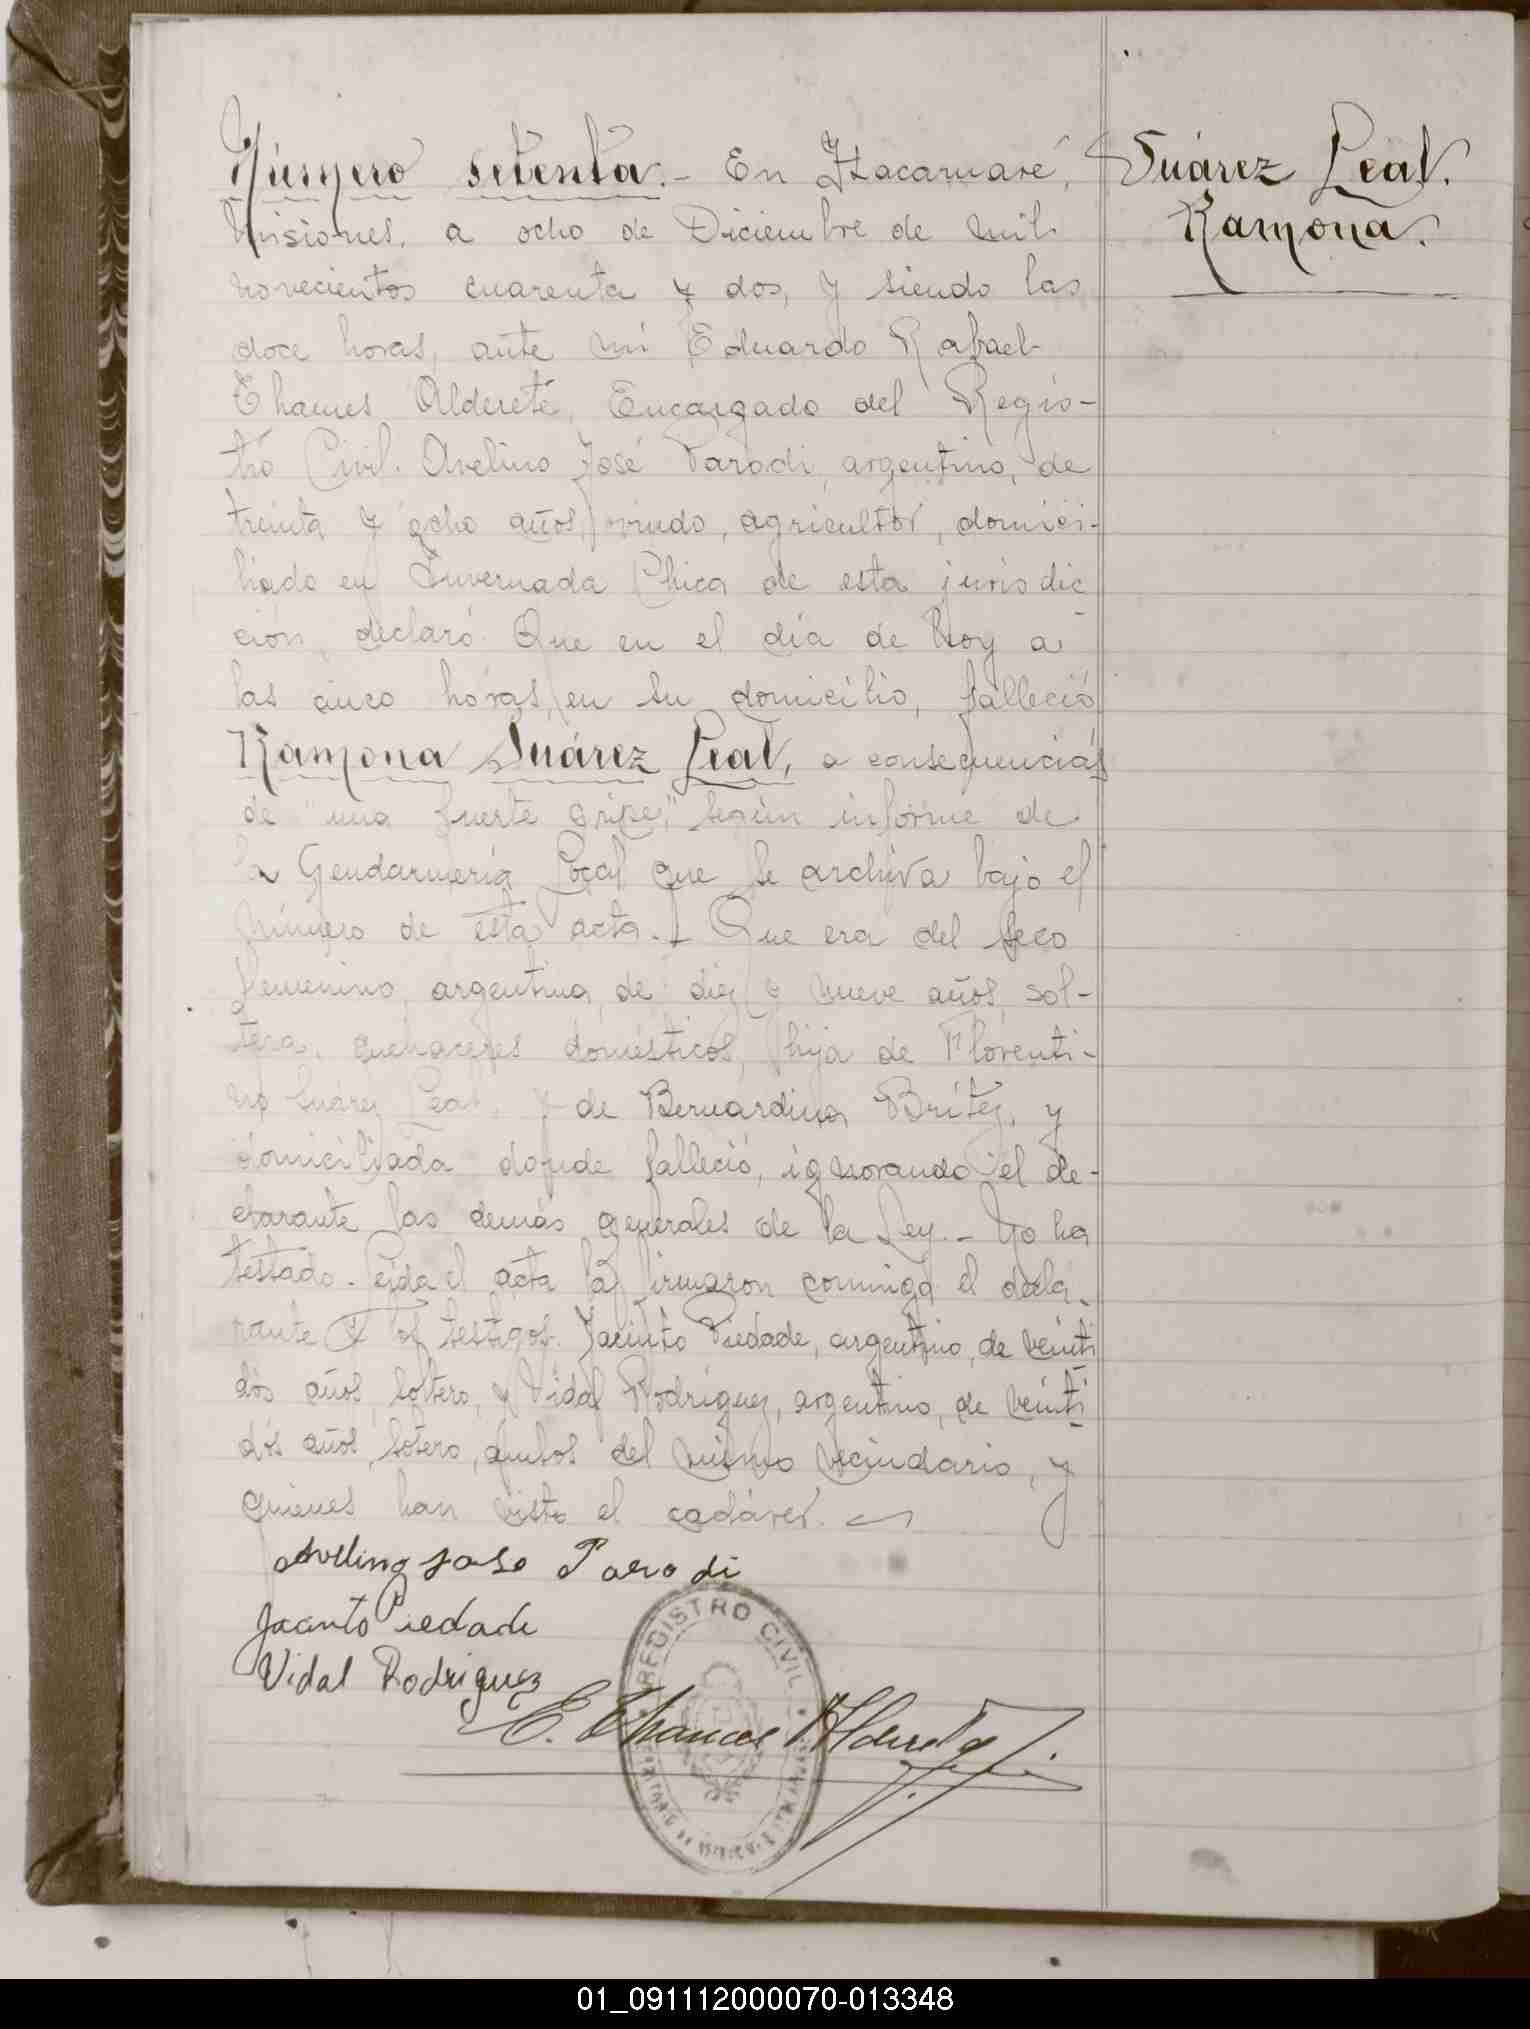 Número setenta.- En Itacaruaré,
Misiones, a ocho de Diciembre de mil
novecientos cuarenta y dos, y siendo las
doce horas, ante mi Eduardo Rafael
Thames Alderete, Encargado del Regis-
tro Civil. Avelino José Parodi, argentino, de
treinta y ocho años, viudo, agricultor, domici-
liado en Invernada Chica de esta jurisdic
ción, declaró: Que en el día de hoy a
las cinco horas, en su domicilio, falleció
Ramona Suárez Leal, a consecuencias
de "una fuerte gripe," según informe de
la Gendarmería Local que se archiva bajo el
número de esta acta.- Que era del sexo
femenino, argentina, de diez y nueve años, sol-
tera, quehaceres domésticos, hija de Florenti-
no Suárez Leal, y de Bernardina Brítez, y
domiciliada donde falleció, ignorando el de-
clarante las demás generales de la Ley.- No ha
testado.- Leída el acta la firmaron conmigo el decla-
rante y los testigos: Jacinto Piedade, argentino, de veinti
dós años, soltero, y Vidal Rodríguez, argentino, de veinti
dós años, soltero, ambos del mismo vecindario, y
quienes han visto el cadáver.
Avelino Jose Parodi
Jacinto Piedade
Vidal Rodriguez
E. Thames Alderete
Suárez Leal.
Ramona.
REGISTRO CIVIL
01_091112000070-013348